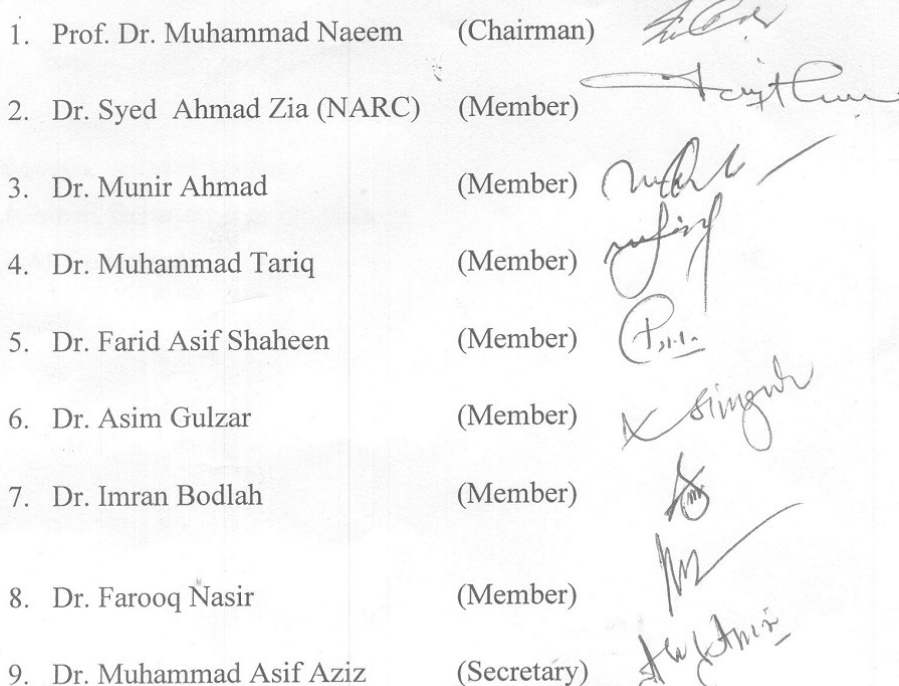 1. Prof. Dr. Muhammad Naeem (Chairman)
2. Dr. Syed Ahmad Zia (NARC) (Member)
3. Dr. Munir Ahmad (Member)
4. Dr. Muhammad Tariq (Member)
5. Dr. Farid Asif Shaheen (Member)
6. Dr. Asim Gulzar (Member)
7. Dr. Imran Bodlah (Member)
8. Dr. Farooq Nasir (Member)
9. Dr. Muhammad Asif Aziz (Secretary)